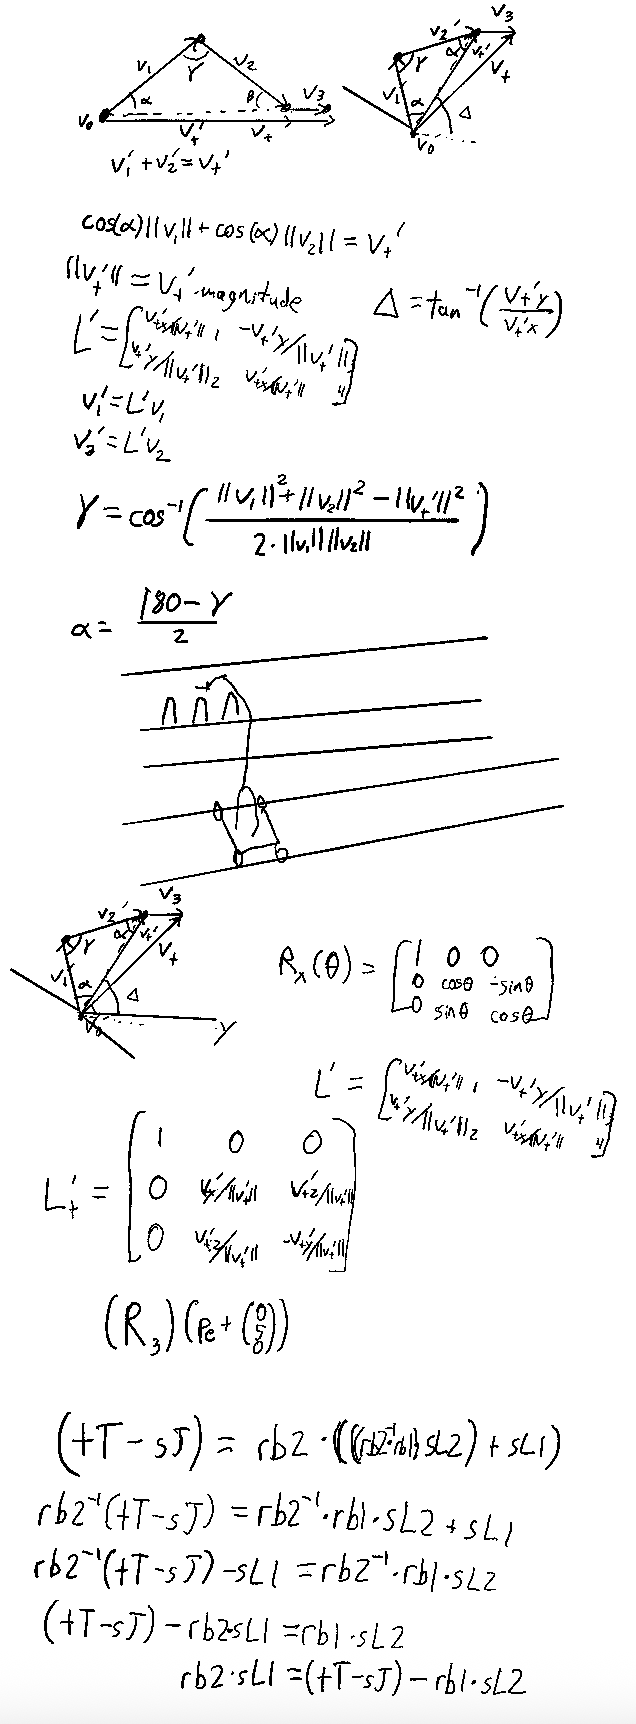 v₁ γ v₂
α β v₃
v₀ v₊' v₊
v₂' v₃
γ α v₊' v₊
v₁ α Δ
v₀
v₁' + v₂' = v₊'
cos(α)||v₁|| + cos(α)||v₂|| = v₊'
||v₊'|| = v₊' magnitude
Δ = tan⁻¹(v₊'y / v₊'x)
L' = [v₊'x/||v₊'|| 1, -v₊'y/||v₊'||
v₊'y/||v₊'|| 2 v₊'x/||v₊'|| 4]
v₁' = L'v₁
v₂' = L'v₂
γ = cos⁻¹( (||v₁||² + ||v₂||² - ||v₊'||²) / (2·||v₁|| ||v₂||) )
α = (180 - γ) / 2
v₂' v₃
γ α v₊' v₊
v₁ α Δ
v₀ y
Rₓ(θ) = [1 0 0
0 cosθ -sinθ
0 sinθ cosθ]
L' = [v₊'x/||v₊'|| 1, -v₊'y/||v₊'||
v₊'y/||v₊'|| 2 v₊'x/||v₊'|| 4]
L₊' = [1 0 0
0 v₊'y/||v₊'|| v₊'z/||v₊'||
0 v₊'z/||v₊'|| -v₊'y/||v₊'||]
(R₃)(Pe + (0 5 0))
(tT - sJ) = rb2 · (((rb2⁻¹·rb1) sL2) + sL1)
rb2⁻¹(tT - sJ) = rb2⁻¹·rb1·sL2 + sL1
rb2⁻¹(tT - sJ) - sL1 = rb2⁻¹·rb1·sL2
(tT - sJ) - rb2·sL1 = rb1·sL2
rb2·sL1 = (tT - sJ) - rb1·sL2